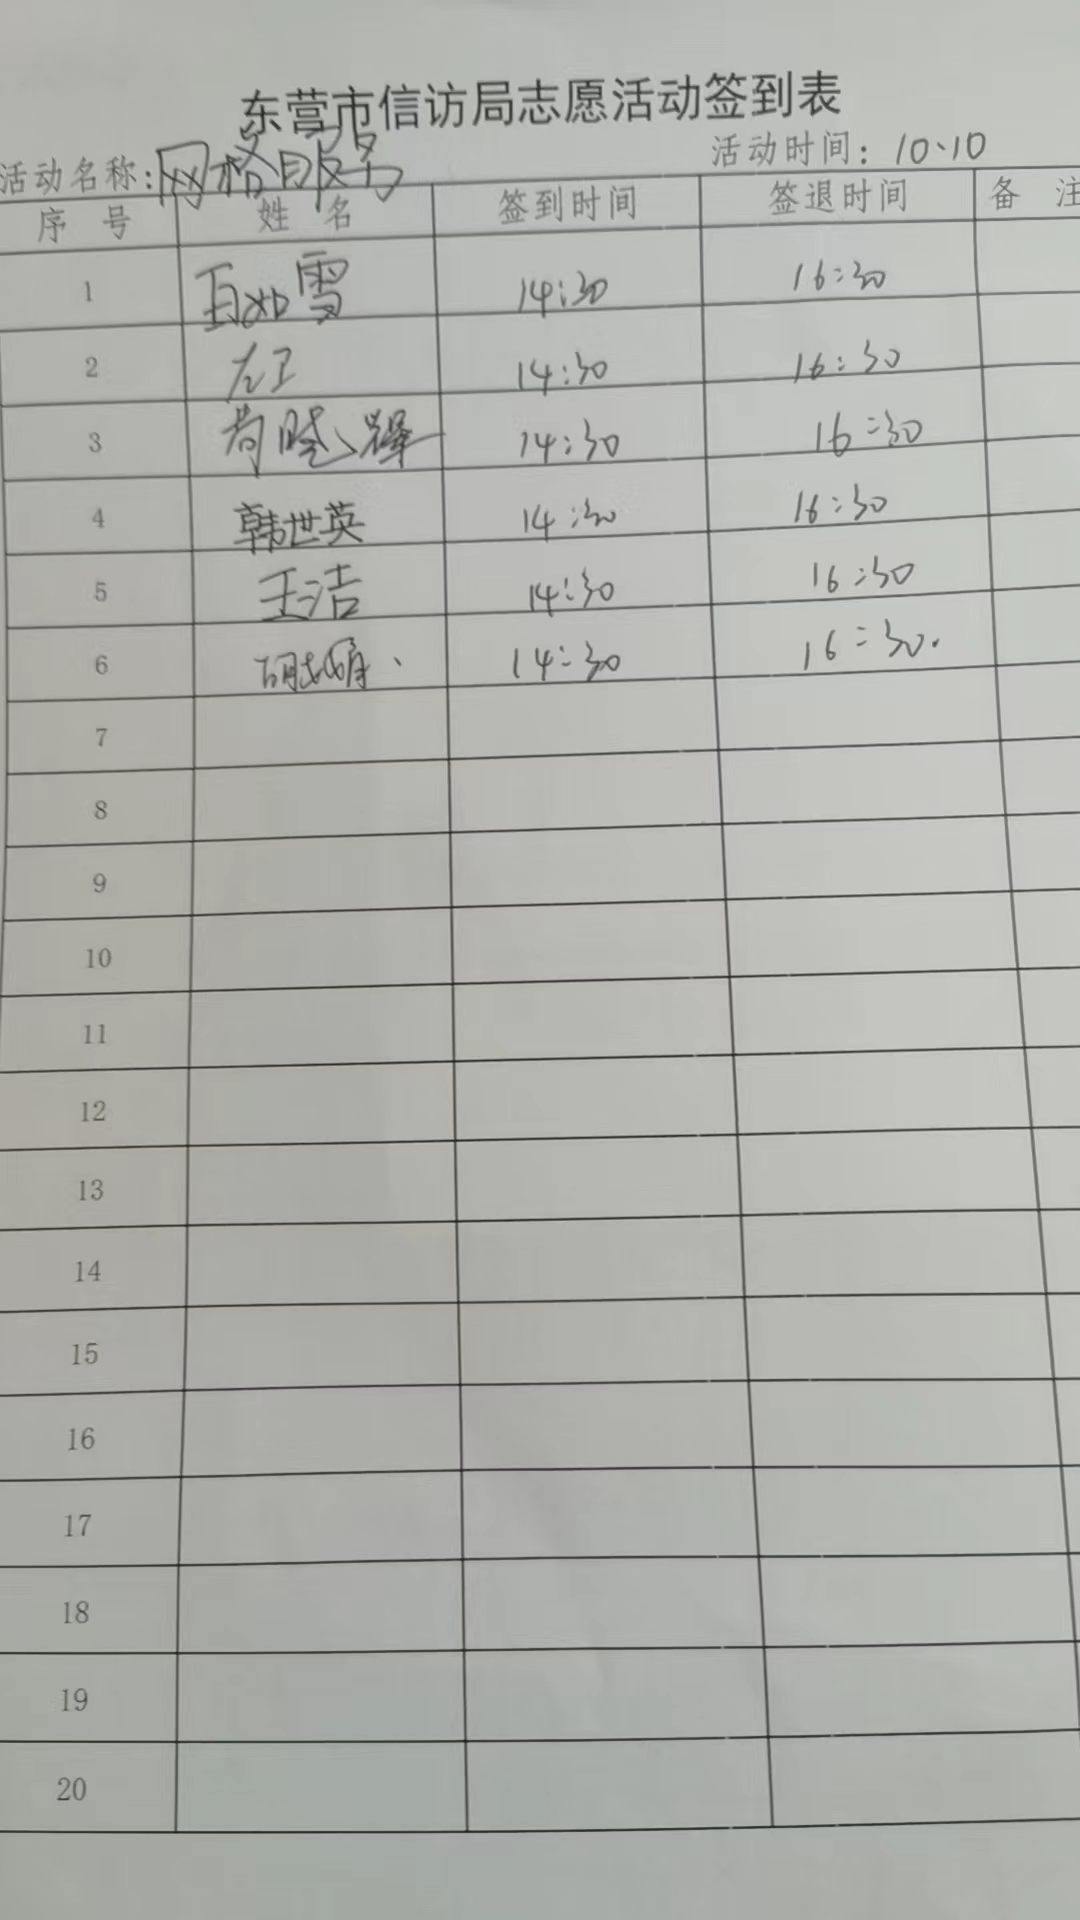 东营市信访局志愿活动签到表
活动名称：网格服务 活动时间：10、10
序号 姓名 签到时间 签退时间 备注
1 百如雪 14:30 16:30
2 左卫 14:30 16:30
3 14:30 16:30
4 韩世英 14:30 16:30
5 王洁 14:30 16:30
6 14:30 16:30.
7
8
9
10
11
12
13
14
15
16
17
18
19
20